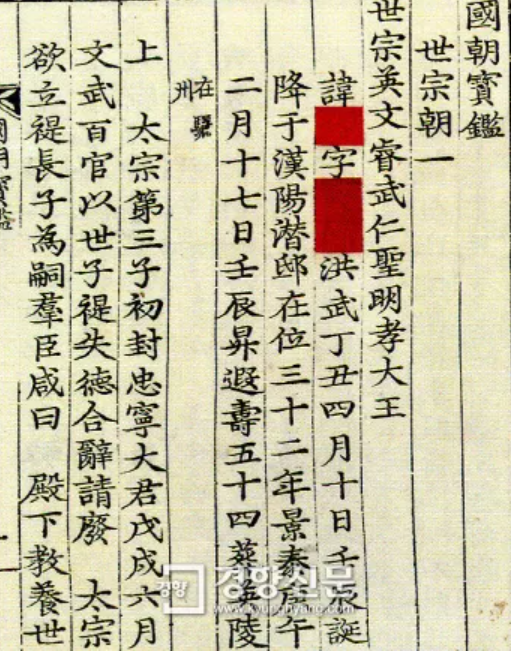 國朝寶鑑
世宗朝一
世宗英文睿武仁聖明孝大王
諱字洪武丁丑四月十日壬辰誕
降于漢陽潜邸在位三十二年景泰庚午
二月十七日壬辰昇遐壽五十四葬英陵
在驪
州
上 太宗第三子初封忠寧大君戊戌六月
文武百官以世子禔失德合辭請廢 太宗
欲立禔長子為嗣羣臣咸曰 殿下教養世
國朝寶鑑
경향 경향신문
www.kyunghyang.com